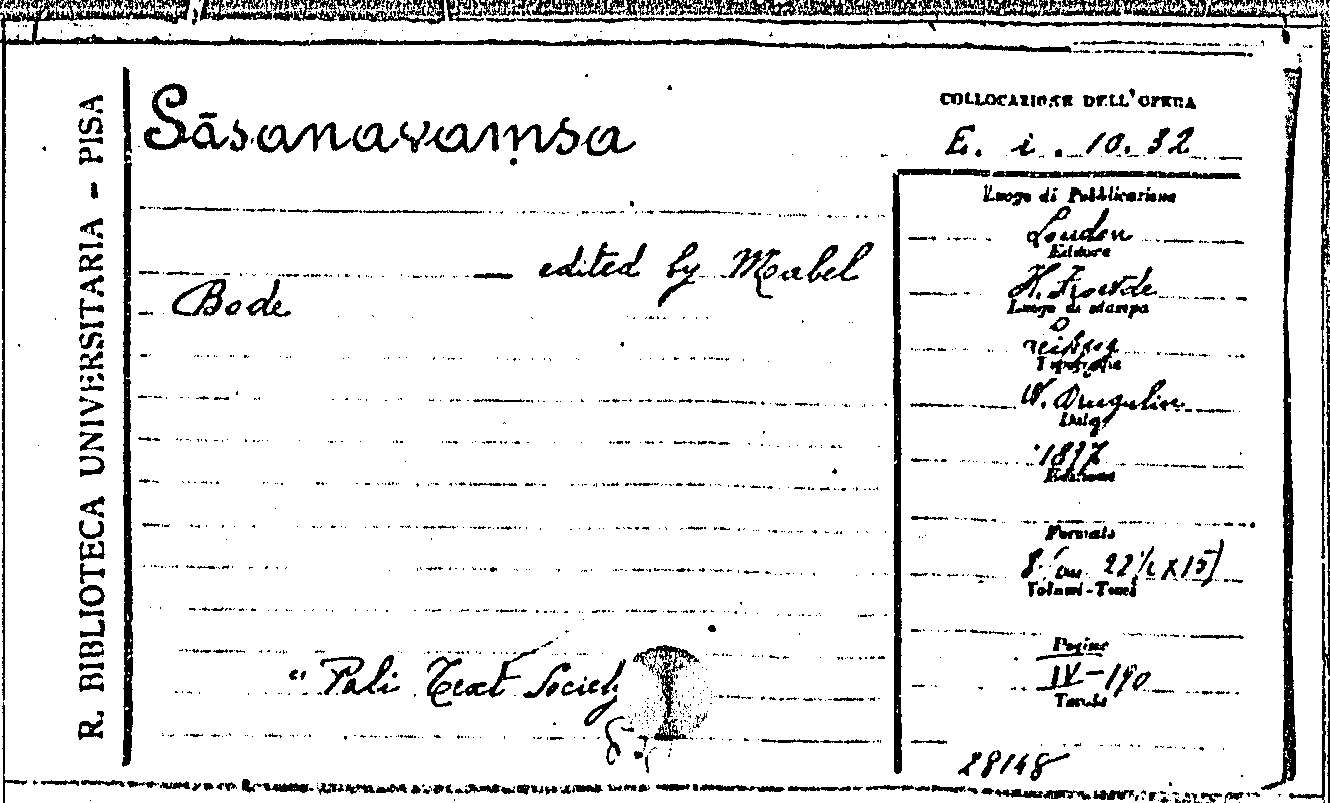 R. BIBLIOTECA UNIVERSITARIA - PISA
Sāsanavaṃsa
— edited by Mabel
Bode
"Pali Text Society
COLLOCAZIONE DELL'OPERA
E. i. 10. 32
Luogo di Pubblicazione
London
Editore
H. Frowde
Luogo di stampa
Leipzig
Tipografia
W. Drugulin
Data
1897
Edizione
Formato
8° (cm. 22½ X 15)
Volumi-Tomi
Pagine
IV-190
Tavole
28148